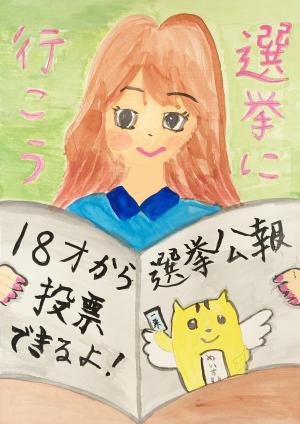 選挙に
行こう
18才から
投票
できるよ!
選挙公報
めいすい